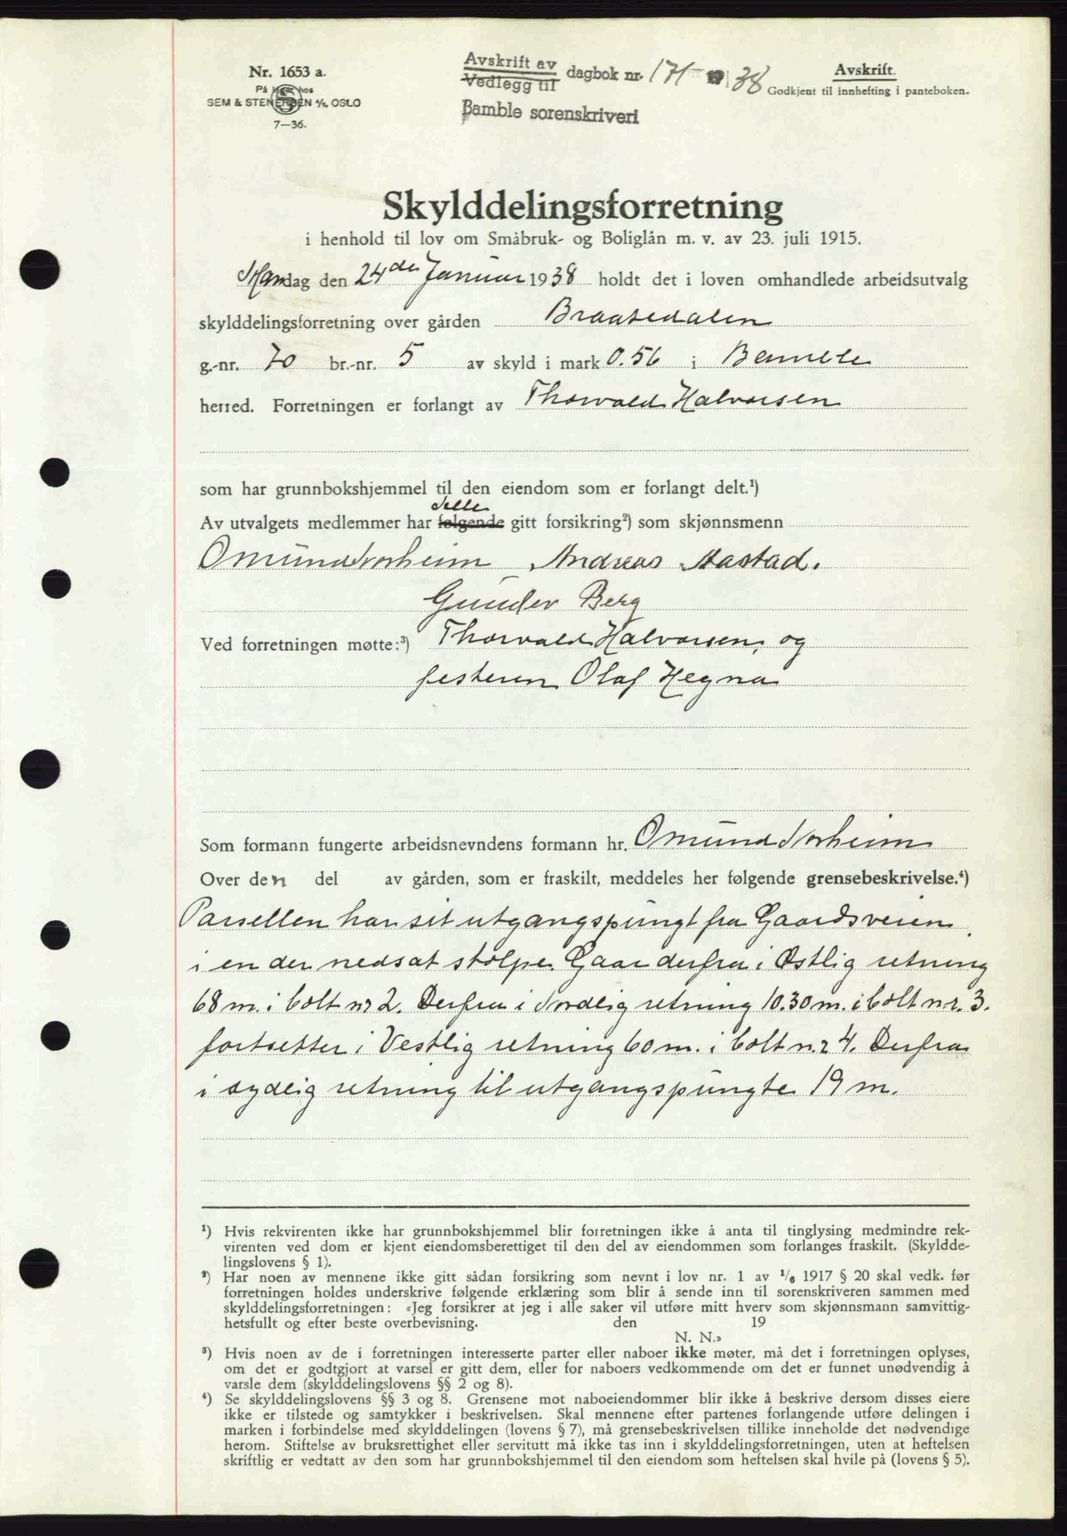 Nr. 1653 a.
På lager hos
SEM & STENERSEN A/S, OSLO
7—36.
Avskrift av
Vedlegg til
dagbok nr. 171 - 1938
Bamble sorenskriveri
Avskrift.
Godkjent til innhefting i panteboken.
Skylddelingsforretning
i henhold til lov om Småbruk- og Boliglån m. v. av 23. juli 1915.
Mandag den 24de Januar 1938 holdt det i loven omhandlede arbeidsutvalg
skylddelingsforretning over gården Braatedalen
g.-nr. 70 br.-nr. 5 av skyld i mark 0.56 i Bamble
herred. Forretningen er forlangt av Thorvald Halvorsen
som har grunnbokshjemmel til den eiendom som er forlangt delt.¹)
Av utvalgets medlemmer har følgende alle gitt forsikring²) som skjønnsmenn
Omund Norheim Andreas Aastad.
Gunder Berg
Ved forretningen møtte:³) Thorvald Halvorsen, og
festeren Olaf Hegna
Som formann fungerte arbeidsnevndens formann hr. Omund Norheim
Over den del av gården, som er fraskilt, meddeles her følgende grensebeskrivelse.⁴)
Parsellen har sit utgangspungt fra Gaardsveien
i en der nedsat stolpe. Gaar derfra i Østlig retning
68 m. i bolt nr 2. Derfra i Nordlig retning 10.30 m. i bolt nr. 3.
fortsetter i Vestlig retning 60 m. i bolt n.r 4. Derfra
i sydlig retning til utgangspungte 19 m.
¹) Hvis rekvirenten ikke har grunnbokshjemmel blir forretningen ikke å anta til tinglysing medmindre rek-
virenten ved dom er kjent eiendomsberettiget til den del av eiendommen som forlanges fraskilt. (Skyldde-
lingslovens § 1).
²) Har noen av mennene ikke gitt sådan forsikring som nevnt i lov nr. 1 av 1/6 1917 § 20 skal vedk. før
forretningen holdes underskrive følgende erklæring som blir å sende inn til sorenskriveren sammen med
skylddelingsforretningen: «Jeg forsikrer at jeg i alle saker vil utføre mitt hverv som skjønnsmann samvittig-
hetsfullt og efter beste overbevisning. den 19
N. N.»
³) Hvis noen av de i forretningen interesserte parter eller naboer ikke møter, må det i forretningen oplyses,
om det er godtgjort at varsel er gitt dem, eller for naboers vedkommende om det er funnet unødvendig å
varsle dem (skylddelingslovens §§ 2 og 8).
⁴) Se skylddelingslovens §§ 3 og 8. Grensene mot naboeiendommer blir ikke å beskrive dersom disses eiere
ikke er tilstede og samtykker i beskrivelsen. Skal mennene efter partenes forlangende utføre delingen i
marken i forbindelse med skylddelingen (lovens § 7), må grensebeskrivelsen tillike inneholde det nødvendige
herom. Stiftelse av bruksrettighet eller servitutt må ikke tas inn i skylddelingsforretningen, uten at heftelsen
skriftlig er vedtatt av den som har grunnbokshjemmel til den eiendom som heftelsen skal hvile på (lovens § 5).